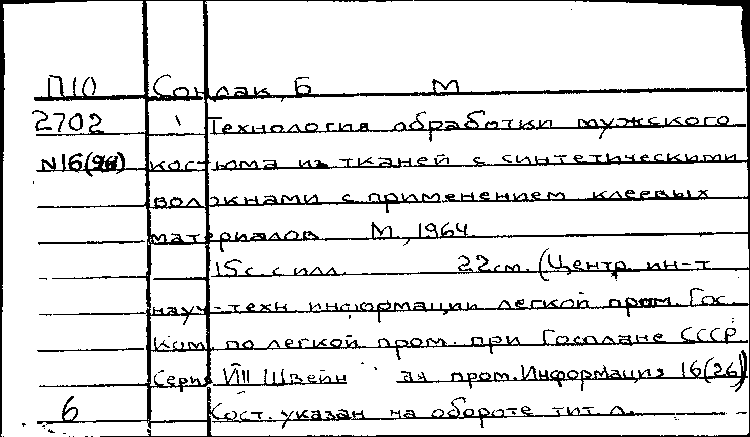 П10 Сондак, Б М
2702 Технология обработки мужского
N16(26) костюма из тканей с синтетическими
волокнами с применением клеевых
материалов М, 1964
15с. с илл. 22см. (Центр ин-т
науч-техн информации легкой пром. Гос.
Ком. по легкой пром. при Госплане СССР
Серия Швейн ая пром. Информация 16(26)
6 Сост. указан на обороте тит л.